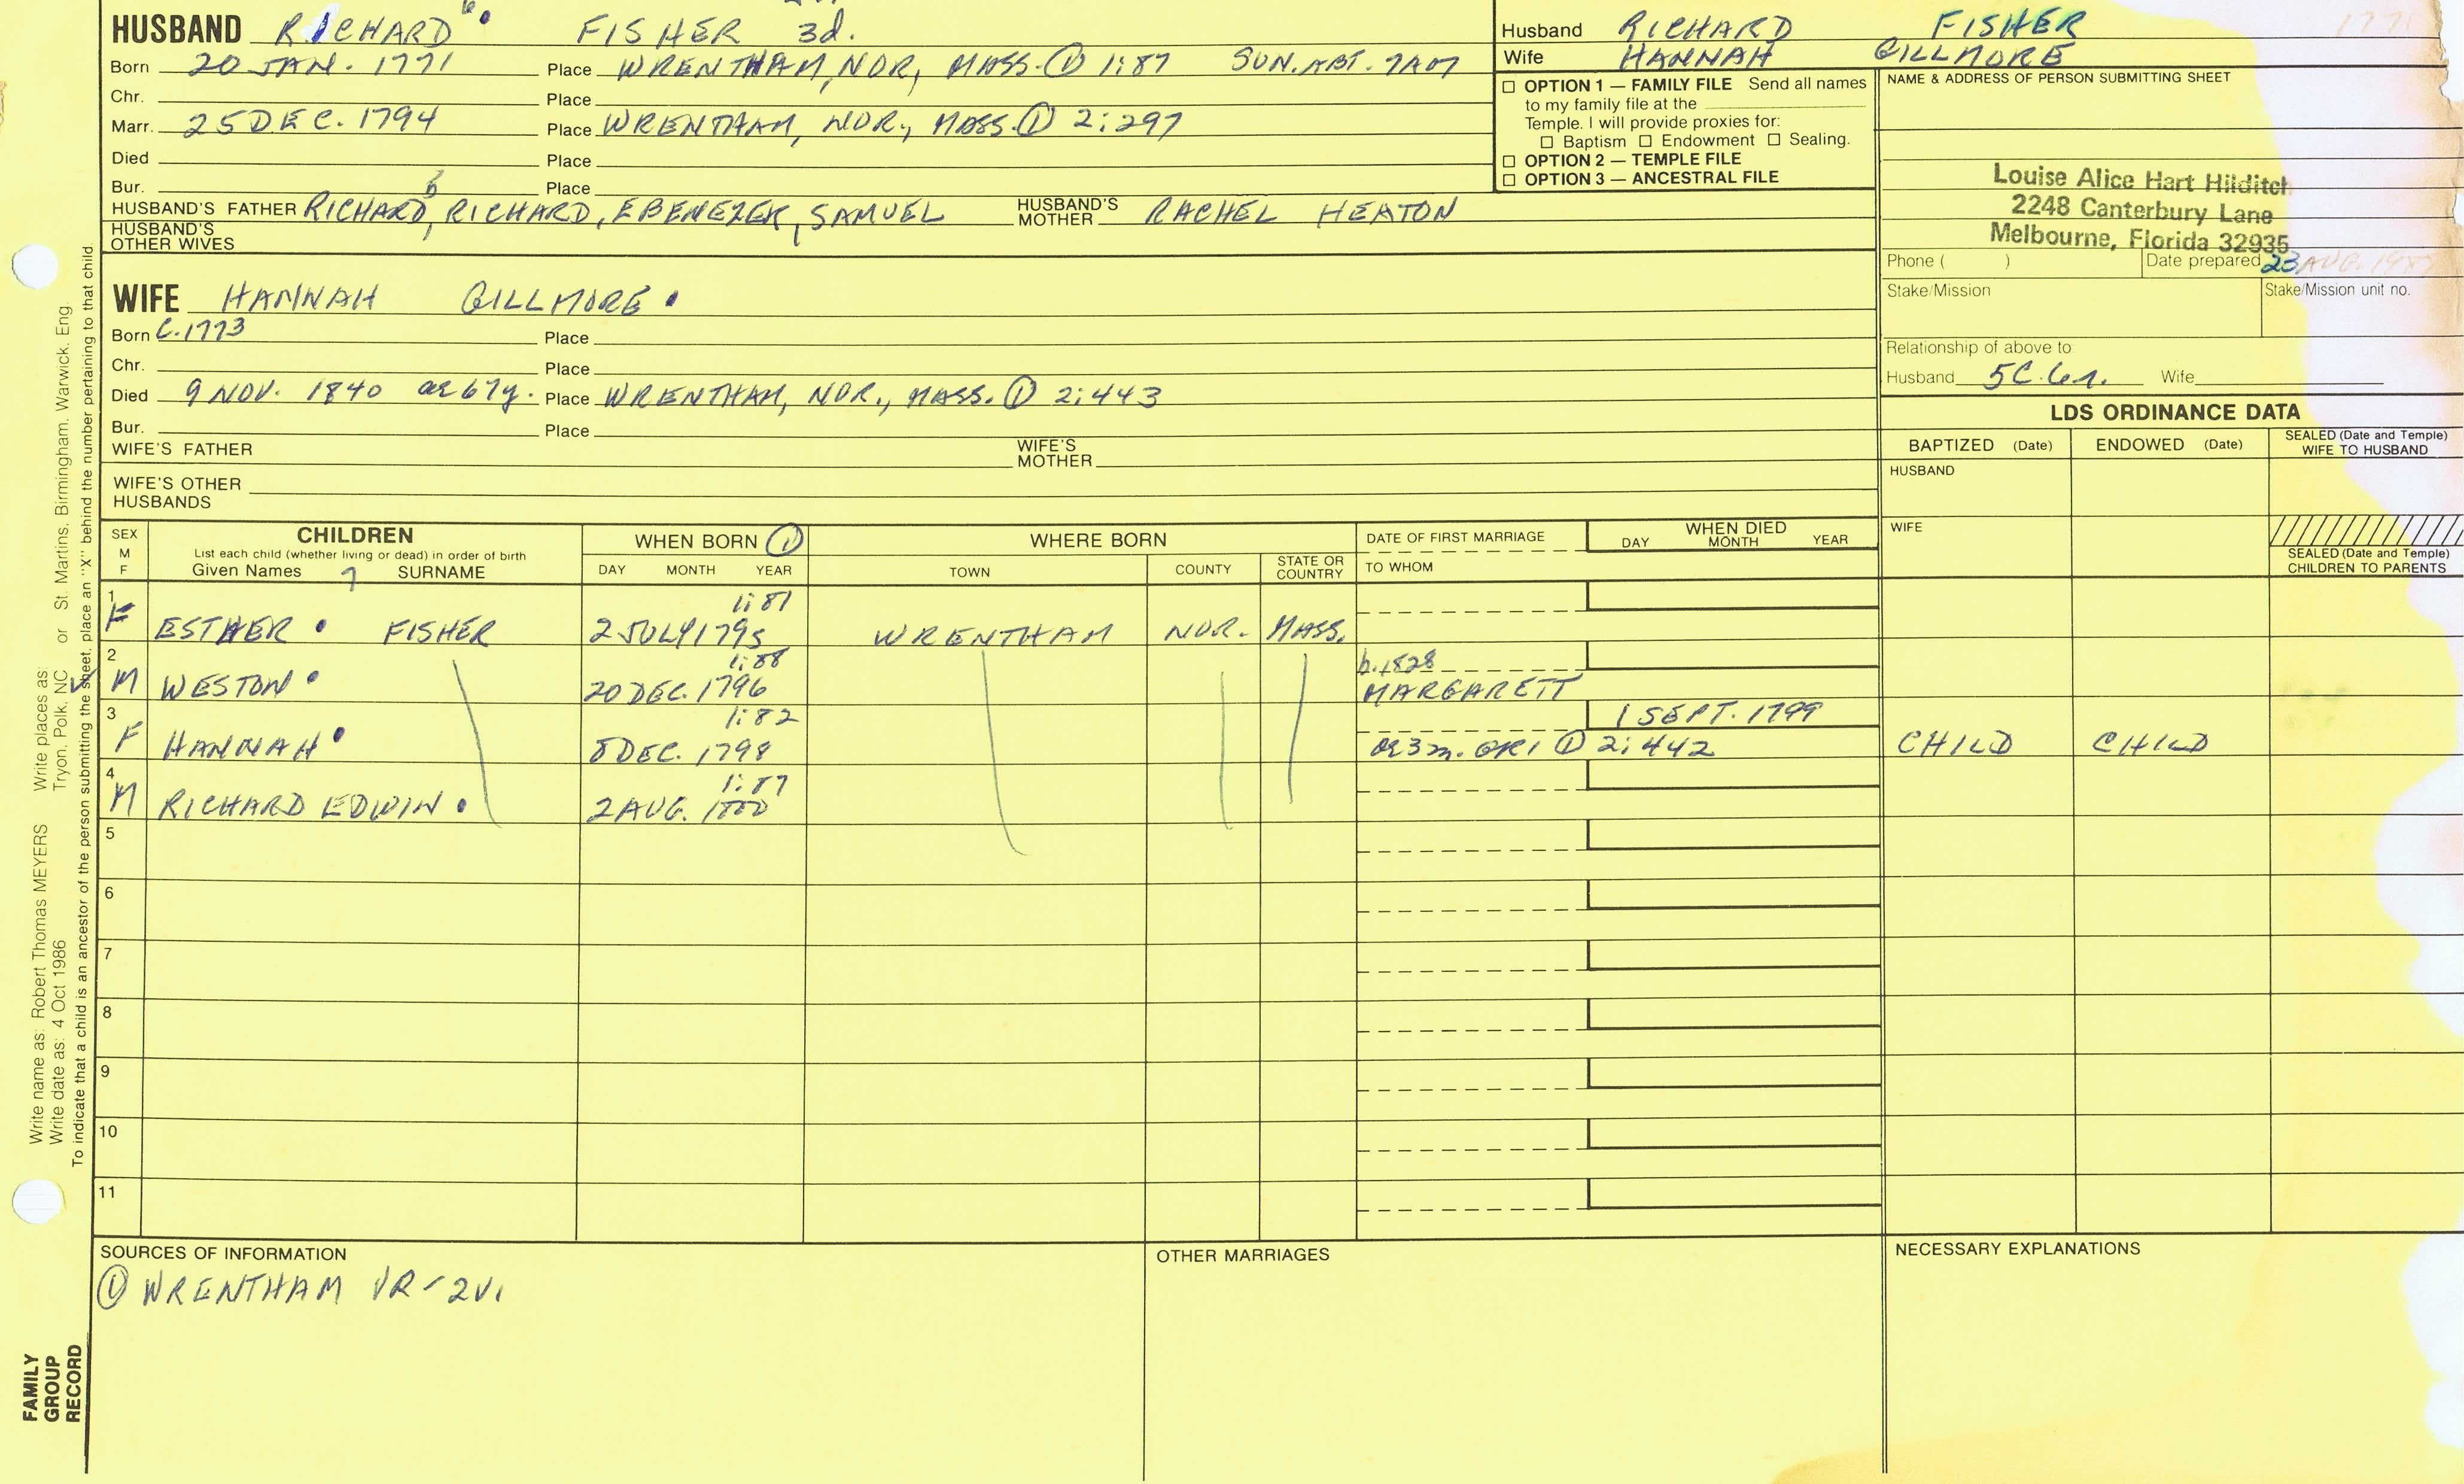 HUSBAND RICHARD 6 FISHER 3d.
Born 20 JAN. 1771 Place WRENTHAM, NOR, MASS. ① 1:87 SUN. ABT. 7AM
Chr. Place
Marr. 25 DEC. 1794 Place WRENTHAM, NOR., MASS. ① 2:297
Died Place
Bur. Place
HUSBAND'S FATHER RICHARD, RICHARD, EBENEZER, SAMUEL HUSBAND'S MOTHER RACHEL HEATON
HUSBAND'S OTHER WIVES
WIFE HANNAH GILLMORE
Born C. 1773 Place
Chr. Place
Died 9 NOV. 1840 ae 67y. Place WRENTHAM, NOR., MASS. ① 2:443
Bur. Place
WIFE'S FATHER WIFE'S MOTHER
WIFE'S OTHER HUSBANDS
Husband RICHARD FISHER 1771
Wife HANNAH GILLMORE
□ OPTION 1 — FAMILY FILE Send all names
to my family file at the
Temple. I will provide proxies for:
□ Baptism □ Endowment □ Sealing.
□ OPTION 2 — TEMPLE FILE
□ OPTION 3 — ANCESTRAL FILE
NAME & ADDRESS OF PERSON SUBMITTING SHEET
Louise Alice Hart Hilditch
2248 Canterbury Lane
Melbourne, Florida 32935
Phone ( ) Date prepared 23 AUG.
Stake/Mission Stake/Mission unit no.
Relationship of above to
Husband 5C.6r. Wife
LDS ORDINANCE DATA
BAPTIZED (Date) ENDOWED (Date) SEALED (Date and Temple) WIFE TO HUSBAND
HUSBAND
WIFE
SEALED (Date and Temple) CHILDREN TO PARENTS
SEX M F
CHILDREN
List each child (whether living or dead) in order of birth
Given Names 7 SURNAME
WHEN BORN ①
DAY MONTH YEAR
WHERE BORN
TOWN COUNTY STATE OR COUNTRY
DATE OF FIRST MARRIAGE
TO WHOM
WHEN DIED
DAY MONTH YEAR
1 1:87
F ESTHER FISHER 2 JULY 1795 WRENTHAM NOR. MASS.
2 1:88 b. 1828
M WESTON 20 DEC. 1796 MARGARETT
3 1:82 1 SEPT. 1799
F HANNAH 8 DEC. 1798 ae 3m. GR1 ① 2:442 CHILD CHILD
4 1:87
M RICHARD EDWIN 2 AUG. 1800
5
6
7
8
9
10
11
SOURCES OF INFORMATION
① WRENTHAM VR-2V.
OTHER MARRIAGES
NECESSARY EXPLANATIONS
Write name as: Robert Thomas MEYERS Write places as: Tryon, Polk, NC or St. Martins, Birmingham, Warwick, Eng.
Write date as: 4 Oct 1986
To indicate that a child is an ancestor of the person submitting the sheet, place an "X" behind the number pertaining to that child.
FAMILY
GROUP
RECORD